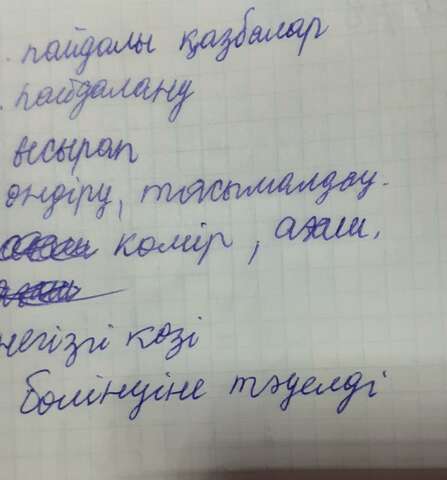 пайдалы қазбалар
пайдалану
ысырап
өндіру, тасымалдау.
көмір,
негізгі көзі
бөлінуіне тәуелді